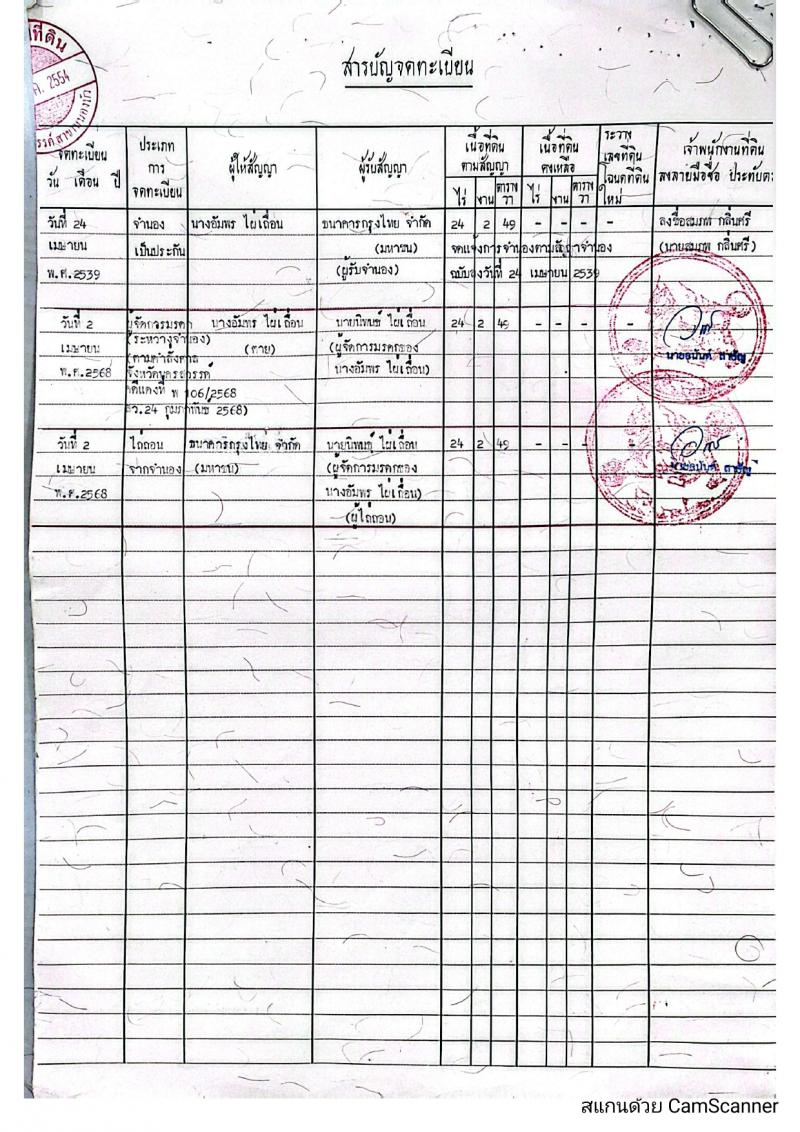 ที่ดิน
ค. 2554
สารบัญจดทะเบียน
จดทะเบียน
วัน เดือน ปี
ประเภท
การ
จดทะเบียน
ผู้ให้สัญญา
ผู้รับสัญญา
เนื้อที่ดิน
ตามสัญญา
ไร่ งาน ตาราง
วา
เนื้อที่ดิน
คงเหลือ
ไร่ งาน ตาราง
วา
ระวาง
เลขที่ดิน
โฉนดที่ดิน
ใหม่
เจ้าพนักงานที่ดิน
ลงลายมือชื่อ ประทับตรา
วันที่ 24 จำนอง นางอัมพร ไผ่เถื่อน ธนาคารกรุงไทย จำกัด 24 2 49 - - - - ลงชื่อสมภพ กลิ่นศรี
เมษายน เป็นประกัน (มหาชน) จดแจ้งการจำนองตามสัญญาจำนอง (นายสมภพ กลิ่นศรี)
พ.ศ.2539 (ผู้รับจำนอง) ฉบับลงวันที่ 24 เมษายน 2539
วันที่ 2 ผู้จัดการมรดก นางอัมพร ไผ่เถื่อน นายนิพนธ์ ไผ่เถื่อน 24 2 49 - - - -
(ระหว่างจำนอง)
เมษายน (ตาย) (ผู้จัดการมรดกของ
(ตามคำสั่งศาล
พ.ศ.2568 จังหวัดนครสวรรค์ นางอัมพร ไผ่เถื่อน)
คดีแดงที่ พ 106/2568
ลว.24 กุมภาพันธ์ 2568)
วันที่ 2 ไถ่ถอน ธนาคารกรุงไทย จำกัด นายนิพนธ์ ไผ่เถื่อน 24 2 49 - - - -
เมษายน จากจำนอง (มหาชน) (ผู้จัดการมรดกของ
พ.ศ.2568 นางอัมพร ไผ่เถื่อน)
(ผู้ไถ่ถอน)
สแกนด้วย CamScanner